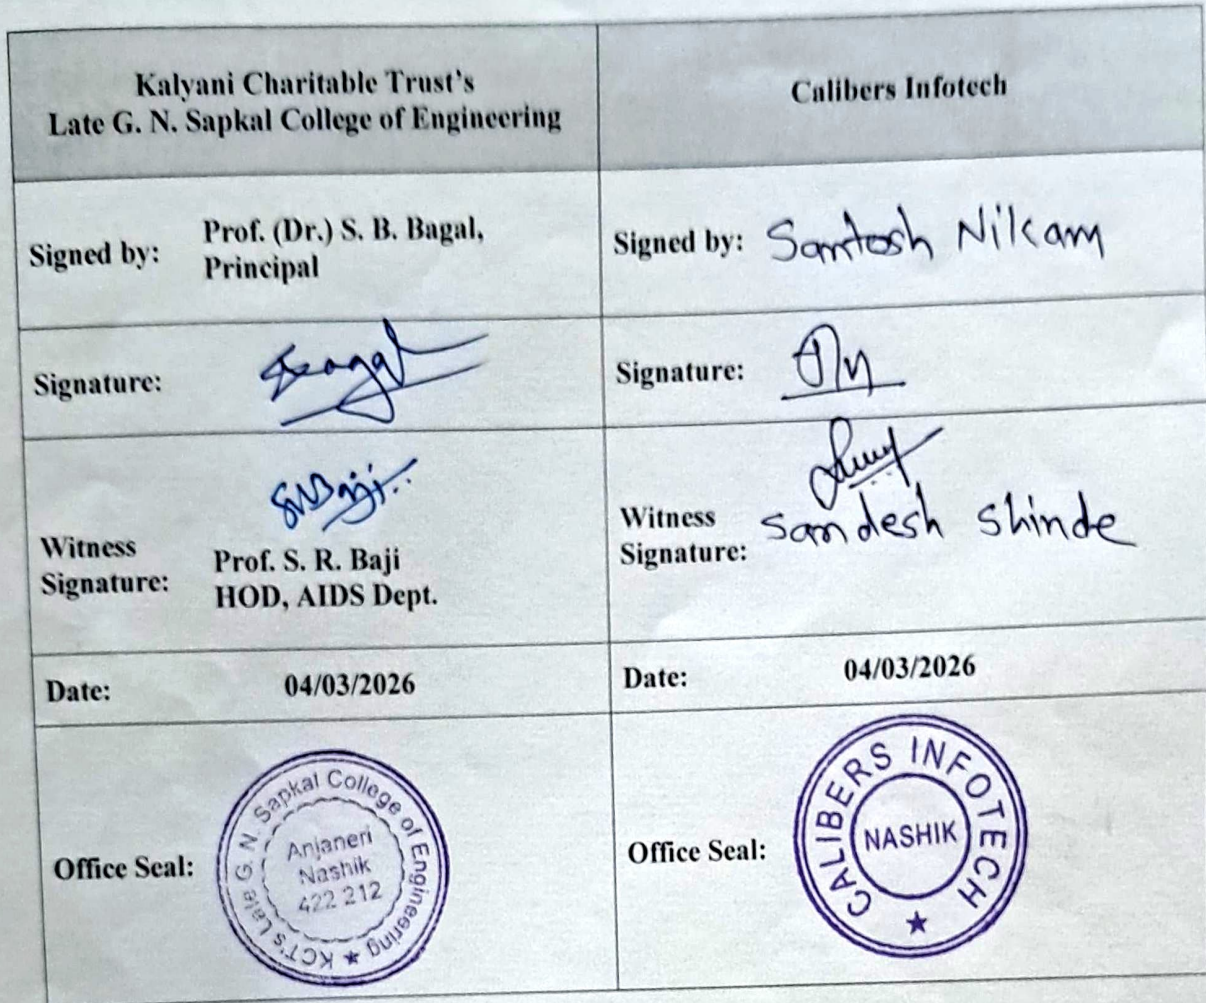 Kalyani Charitable Trust's
Late G. N. Sapkal College of Engineering
Calibers Infotech
Signed by:
Prof. (Dr.) S. B. Bagal,
Principal
Signed by: Santosh Nikam
Signature:
Signature:
SRBaji
Witness
Signature:
Prof. S. R. Baji
HOD, AIDS Dept.
Witness
Signature:
Sandesh Shinde
Date: 04/03/2026
Date: 04/03/2026
Office Seal:
KCT's Late G. N. Sapkal College of Engineering ★
Anjaneri
Nashik
422 212
Office Seal:
CALIBERS INFOTECH ★
NASHIK